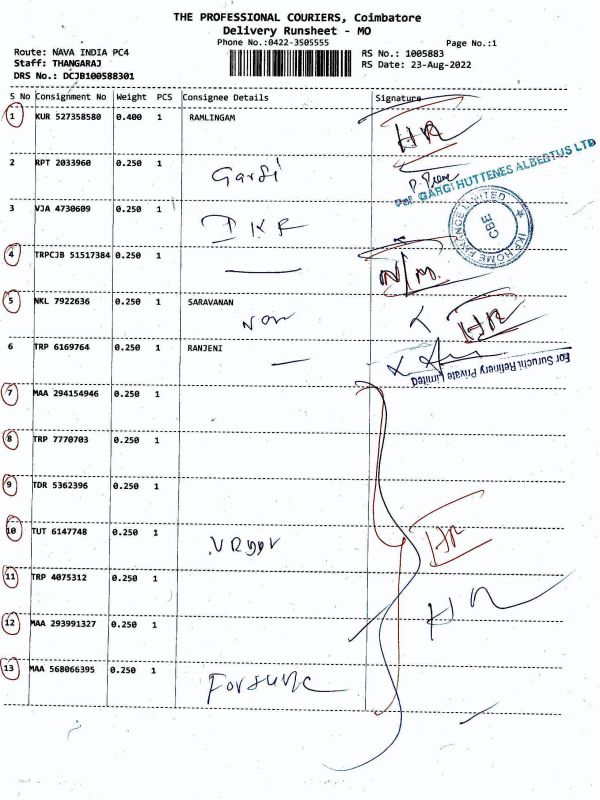 THE PROFESSIONAL COURIERS, Coimbatore
Delivery Runsheet - MO
Phone No.:0422-3505555
Page No.:1
Route: NAVA INDIA PC4
RS No.: 1005883
Staff: THANGARAJ
RS Date: 23-Aug-2022
DRS No.: DCJB100588301
S No Consignment No Weight PCS Consignee Details Signature
1 KUR 527358580 0.400 1 RAMLINGAM
HR
2 RPT 2033960 0.250 1 Gargi
For GARGI HUTTENES ALBERTUS LTD
3 VJA 4730609 0.250 1 IKF
IKF HOME FINANCE LIMITED
CBE
4 TRPCJB 51517384 0.250 1
N/M.
5 NKL 7922636 0.250 1 SARAVANAN
HR
6 TRP 6169764 0.250 1 RANJENI
For Suruchi Refinery Private Limited
7 MAA 294154946 0.250 1
8 TRP 7770703 0.250 1
9 TDR 5362396 0.250 1
10 TUT 6147748 0.250 1
HR
11 TRP 4075312 0.250 1
HR
12 MAA 293991327 0.250 1
13 MAA 568066395 0.250 1